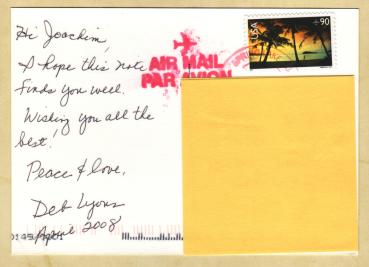 Hi Joachim,
I hope this note
finds you well.
Wishing you all the
best!
Peace & love,
Deb Lyons
April 2008
AIR MAIL
PAR AVION
USA
90